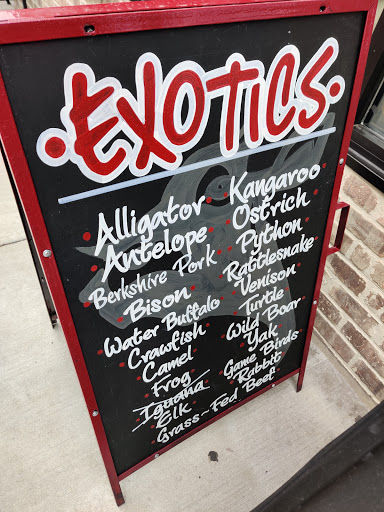 EXOTICS
Alligator
Antelope
Berkshire Pork
Bison
Water Buffalo
Crawfish
Camel
Frog
Iguana
Elk
Grass-Fed Beef
Kangaroo
Ostrich
Python
Rattlesnake
Venison
Turtle
Wild Boar
Yak
Game Birds
Rabbit